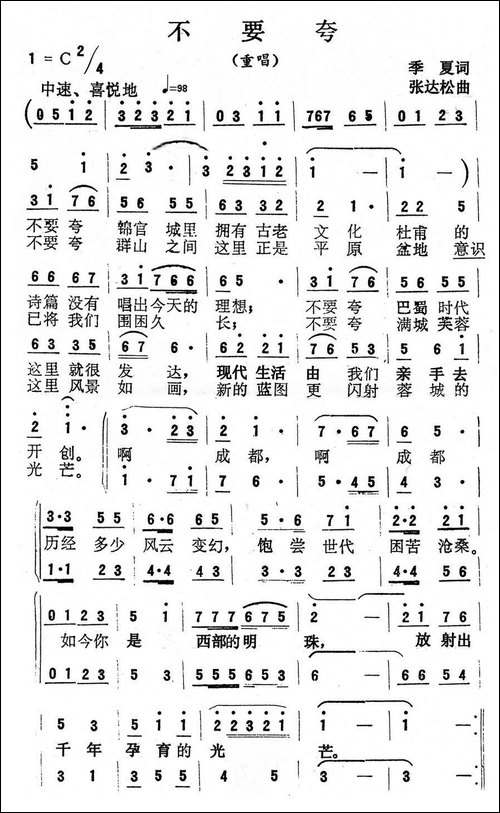 不要夸
1=C 2/4
(重唱)
季 夏词
中速、喜悦地 ♩=98
张达松曲
(0 5 1 2 | 3 2 3 2 1 | 0 3 1 1 | 767 6 5 | 0 1 2 3
5 1 | 2 3 · 3 | 2 3 1 2 | 1 — | 1 — )
3 1 7 6 | 5 6 5 5 | 6 6 7 6 | 2 1 · | 2 2 1 6
不要 夸 锦官 城里 拥有 古老 文 化 杜甫 的
不要 夸 群山 之间 这里 正是 平 原 盆地 意识
6 6 6 7 | 3 1 7 6 6 | 6 5 · | 3 1 7 6 | 5 6 5 5
诗篇 没有 唱出今天的 理想; 不要 夸 巴蜀 时代
已将 我们 围困久 长; 不要 夸 满城 芙蓉
6 3 3 5 | 6 7 6 · | 6 2 2 6 | 7 6 5 3 | 5 6 1
这里 就很 发 达, 现代 生活 由 我们 亲 手去
这里 风景 如 画, 新的 蓝图 更 闪射 蓉 城的
2 1 · | 3 · 2 3 | 2 1 · | 7 · 6 7 | 6 5 ·
开 创。 啊 成都, 啊 成都
光 芒。
1 · 7 1 | 7 6 · | 5 · 4 5 | 4 3 ·
3·3 5 5 | 6·6 6 5 | 5 · 6 7 1 | 2·2 2 1
历经 多少 风云 变幻, 饱 尝 世代 困苦 沧桑。
1·1 2 3 | 4·4 4 3 | 3 · 4 2 3 | 4·4 5 6
0 1 2 3 | 5 1 | 7 7 7 6 7 5 | 2 — | 2 1 7 6
如今你 是 西部的 明 珠, 放 射出
0 1 2 3 | 5 3 | 5 5 5 6 5 3 | 6 — | 6 6 5 4
5 3 | 5 1 1 | 2 2 3 2 1 | 1 — | 1 —
千 年 孕 育的 光 芒。
3 1 | 3 5 5 | 4 5 | 3 — | 3 —